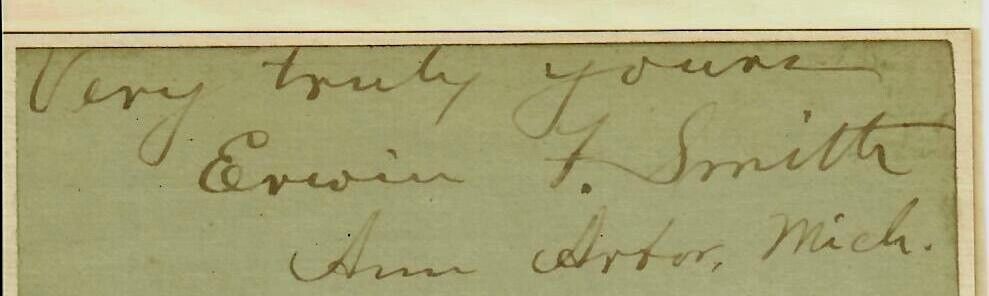 Very truly yours
Erwin F. Smith
Ann Arbor, Mich.